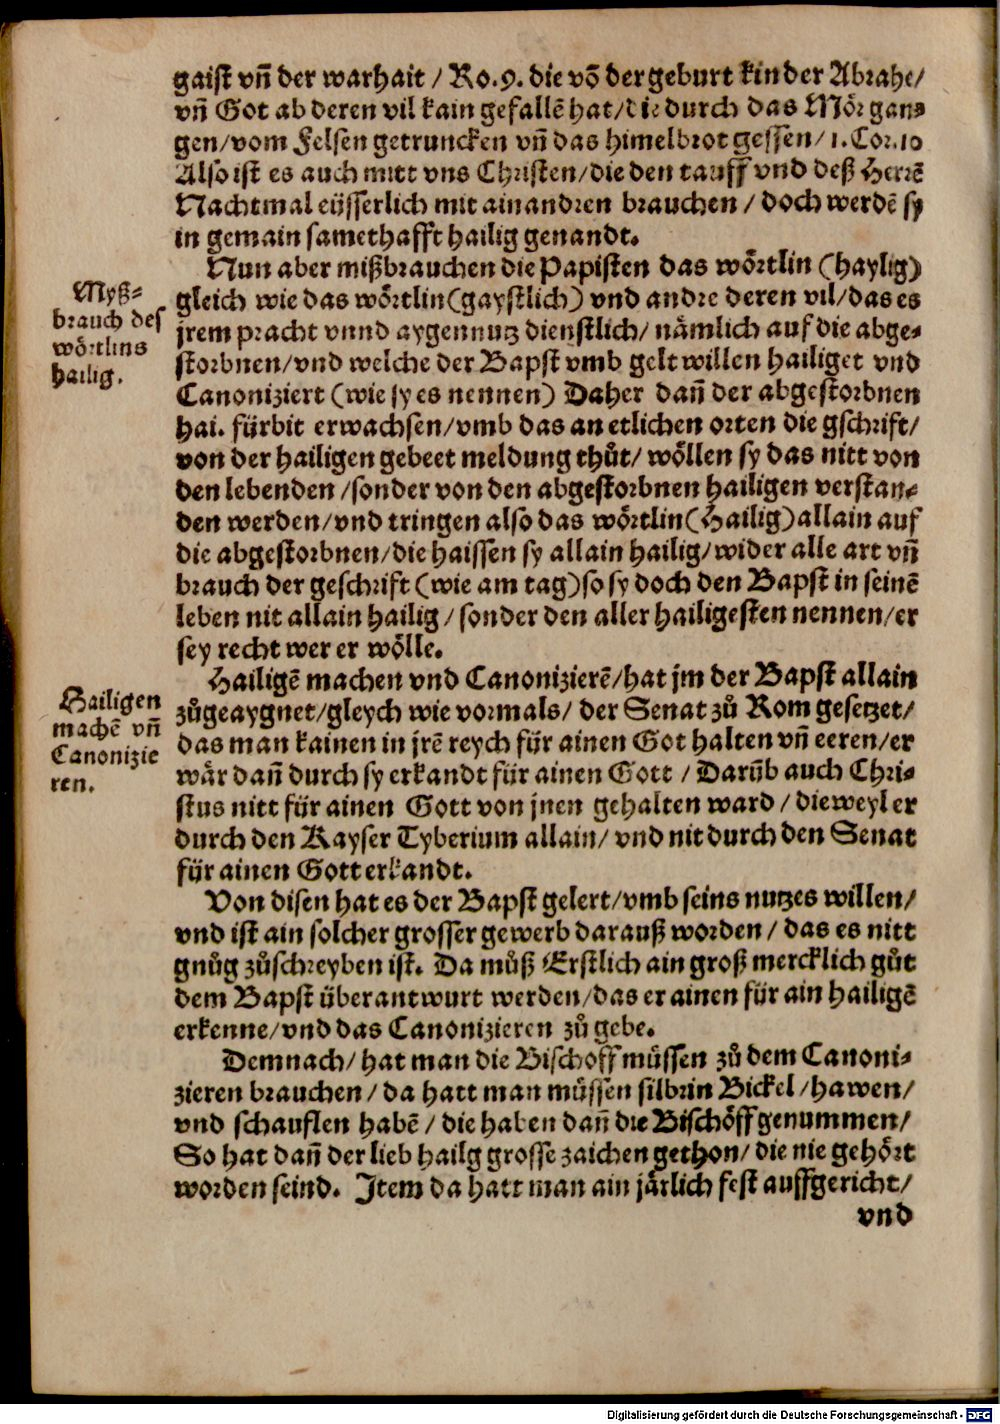 gaist vñ der warhait / Ro. 9. die võ der geburt kinder Abrahe/
vñ Got ab deren vil kain gefallẽ hat/die durch das Mör gan⸗
gen/vom Felsen getruncken vñ das himelbrot gessen/ 1. Cor. 10
Also ist es auch mitt vns Christen/die den tauff vnd deß Herrẽ
Nachtmal eüsserlich mit ainandren brauchen / doch werdẽ sy
in gemain samethafft hailig genandt.
Nun aber mißbrauchen die Papisten das wörtlin (haylig)
Myß⸗
brauch des
wörtlins
hailig.
gleich wie das wörtlin(gaystlich) vnd andre deren vil/das es
jrem pracht vnnd aygennutz dienstlich/ nämlich auf die abge⸗
storbnen/vnd welche der Bapst vmb gelt willen hailiget vnd
Canoniziert (wie sy es nennen) Daher dañ der abgestorbnen
hai. fürbit erwachsen/vmb das an etlichen orten die gschrift/
von der hailigen gebeet meldung thůt/ wöllen sy das nitt von
den lebenden /sonder von den abgestorbnen hailigen verstan⸗
den werden/vnd tringen also das wörtlin(Hailig)allain auf
die abgestorbnen/die haissen sy allain hailig/wider alle art vñ
brauch der geschrift (wie am tag)so sy doch den Bapst in seinẽ
leben nit allain hailig / sonder den aller hailigesten nennen/er
sey recht wer er wölle.
Hailigẽ machen vnd Canonizierẽ/hat jm der Bapst allain
Hailigen
machẽ vñ
Canonizie
ren.
zůgeaygnet/gleych wie vormals/ der Senat zů Rom gesetzet/
das man kainen in jrẽ reych für ainen Got halten vñ eeren/er
wär dañ durch sy erkandt für ainen Gott / Darũb auch Chri⸗
stus nitt für ainen Gott von jnen gehalten ward / dieweyl er
durch den Kayser Tyberium allain/ vnd nit durch den Senat
für ainen Gott erkandt.
Von disen hat es der Bapst gelert/vmb seins nutzes willen/
vnd ist ain solcher grosser gewerb darauß worden / das es nitt
gnůg zůschreyben ist. Da můß Erstlich ain groß mercklich gůt
dem Bapst überantwurt werden/das er ainen für ain hailigẽ
erkenne/vnd das Canonizieren zů gebe.
Demnach/ hat man die Bischoff müssen zů dem Canoni⸗
zieren brauchen / da hatt man müssen silbrin Bickel /hawen/
vnd schauflen habẽ / die haben dañ die Bischöff genummen/
So hat dañ der lieb hailg grosse zaichen gethon/ die nie gehört
worden seind. Item da hatt man ain järlich fest auffgericht/
vnd
Digitalisierung gefördert durch die Deutsche Forschungsgemeinschaft - DFG